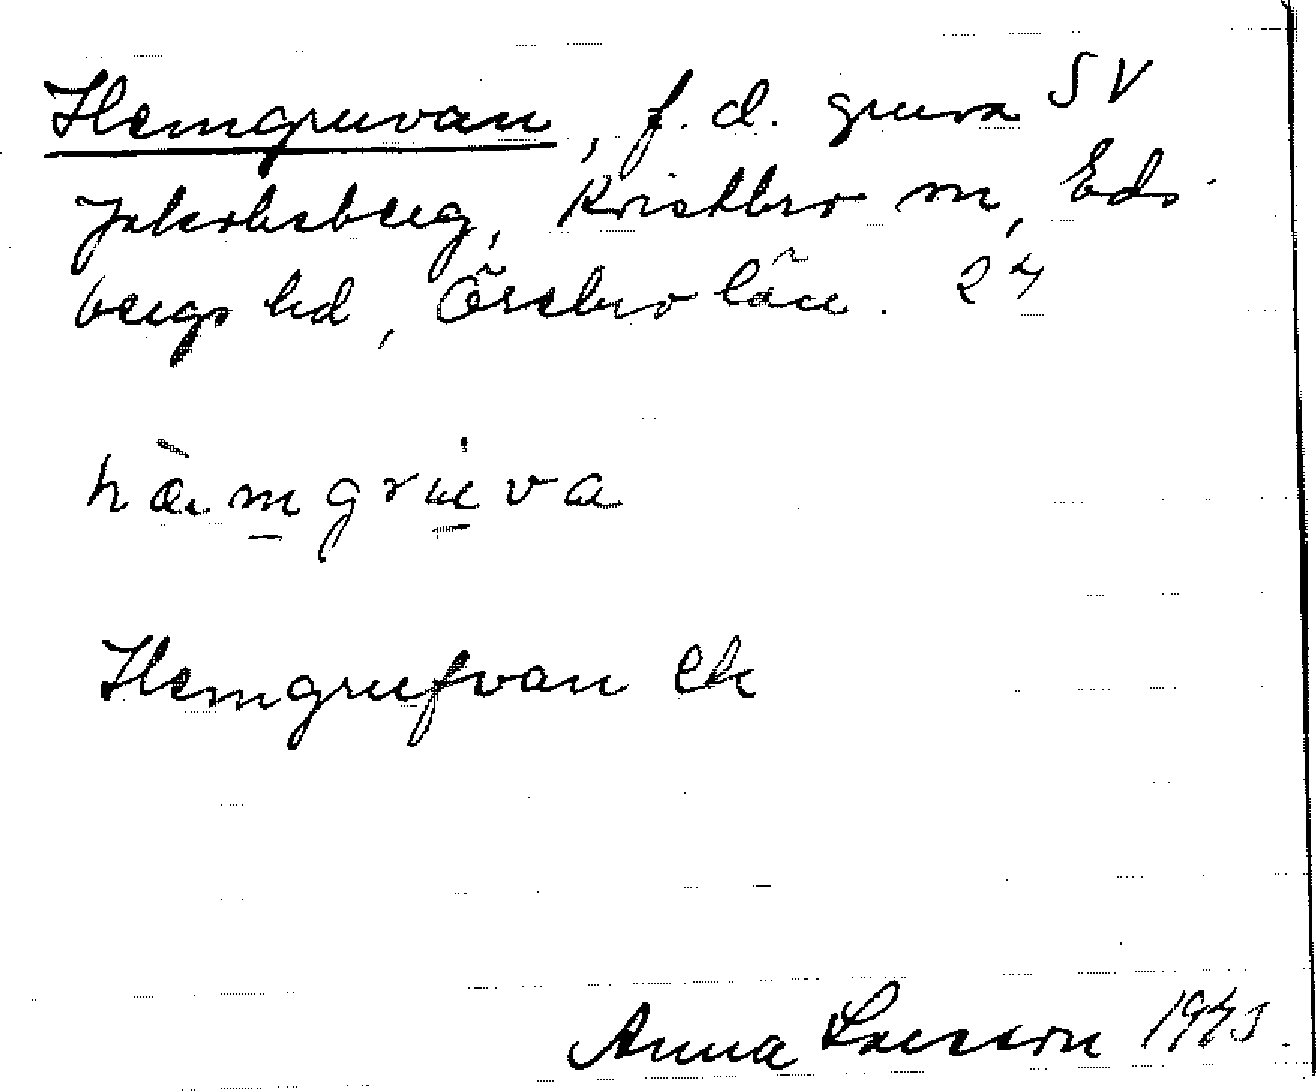 Hemgruvan, f.d. gruva SV
Jakobsberg, Kristbro m, Eds
bergs hd, Örebro län. 24
hæ̀mgrùva
Hemgrufvan Ek
Anna Larsson 1943